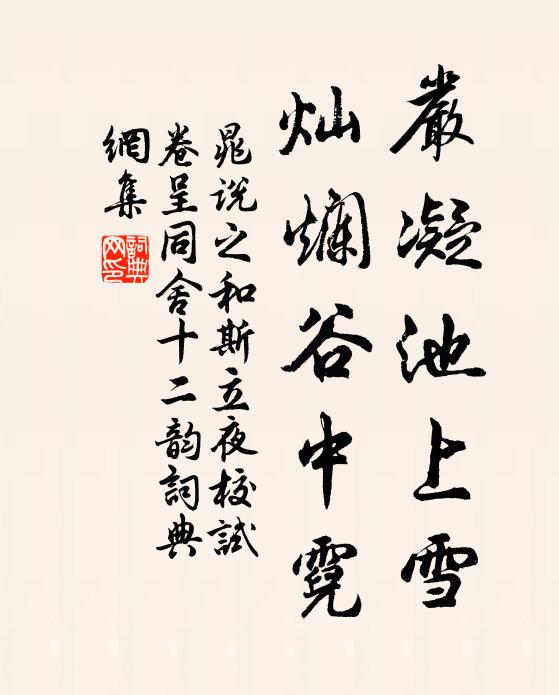 嚴凝池上雪
灿斓谷中霓
晁说之和斯立夜校試
卷呈同舍十二韵詞典
網集
詞典網印